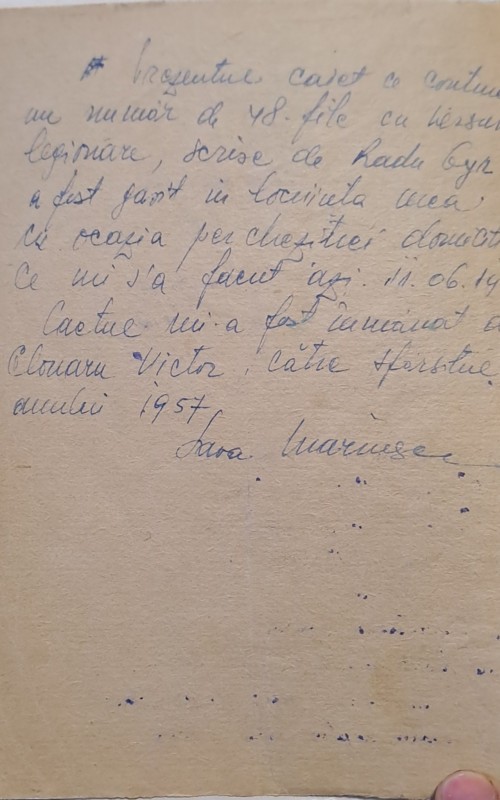 Prezentul caiet ce conține
un număr de 48. file cu versuri
legionare, scrise de Radu Gyr
a fost găsit în locuința mea
cu ocazia perchezitiei domici
ce mi s'a facut azi. 11.06.19
Caetul mi-a fost înmânat d
Clonaru Victor, către sfersitul
anului 1957.
Sava Marinescu